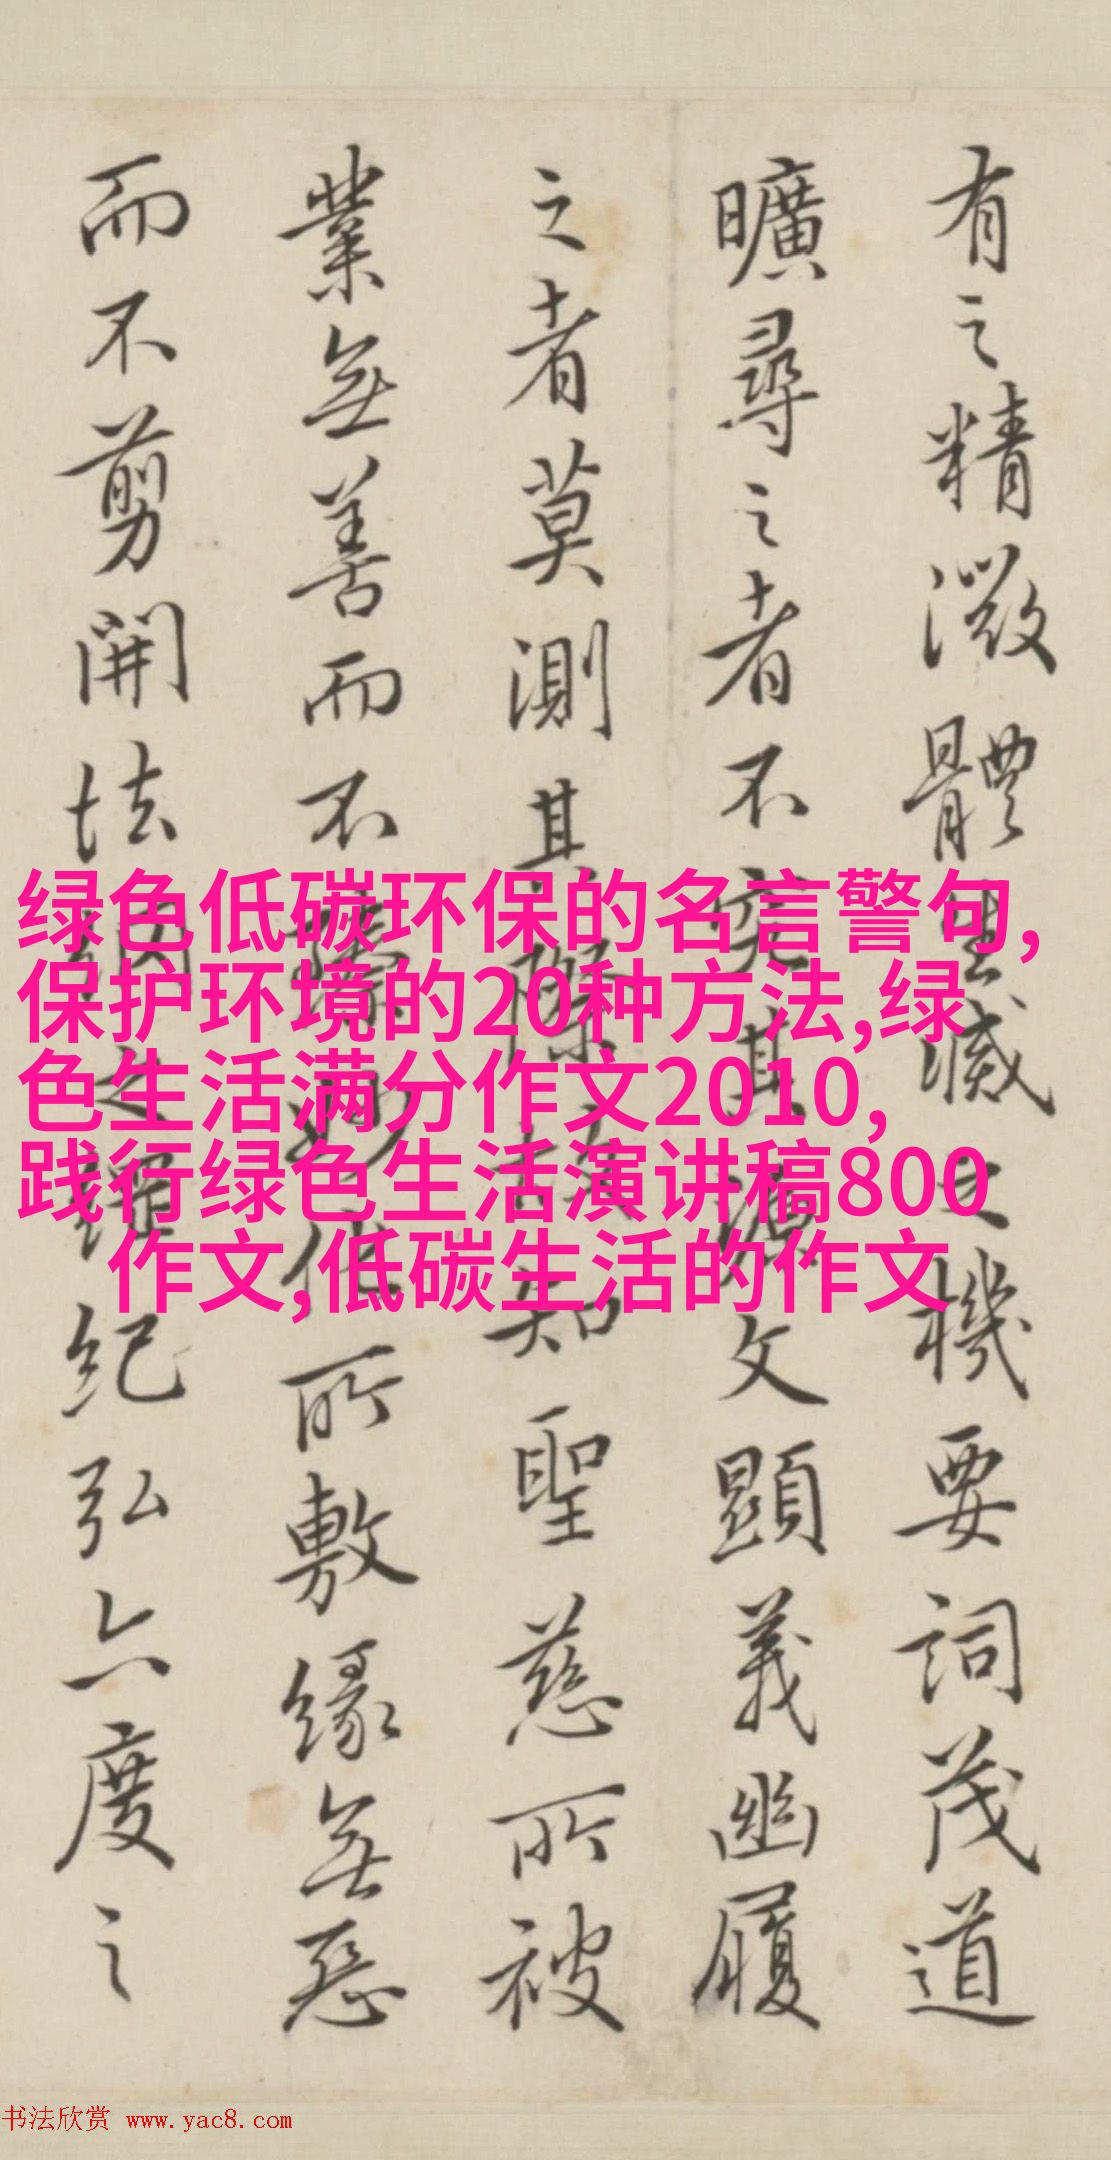 有之精微體生滅之機要詞茂道
曠尋之者不究其源文顯義幽履
之者莫測其際故知聖慈所被
業無善而不臻妙化所敷緣無惡
而不剪開法網之綱紀弘六度之
绿色低碳环保的名言警句,
保护环境的20种方法,绿
色生活满分作文2010,
践行绿色生活演讲稿800
作文,低碳生活的作文
书法欣赏 www.yac8.com